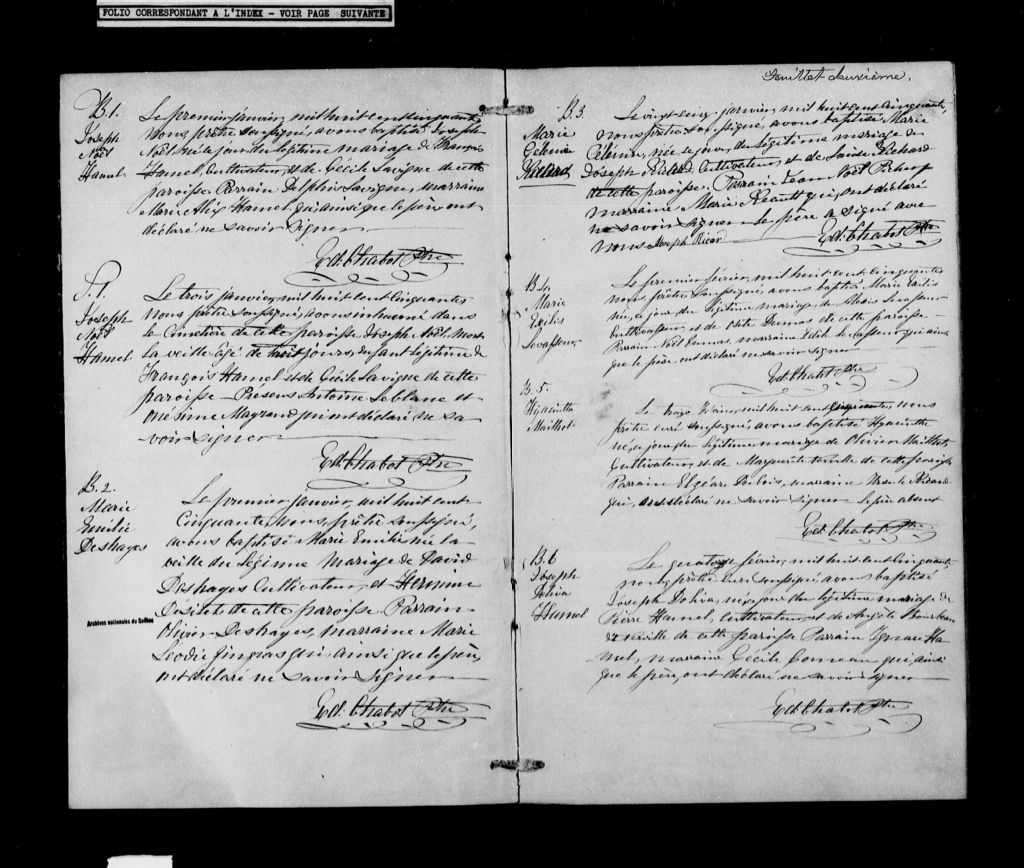 FOLIO CORRESPONDANT A L'INDEX - VOIR PAGE SUIVANTE
B.1.
Joseph
Noël
Hamel
Le premier janvier, mil huit cent cinquante
Nous, prêtre soussigné, avons baptisé Joseph
Noël né le jour du légitime mariage de François
Hamel, Cultivateur, et de Cécile Savigne de cette
paroisse Parrain Delphis Savigne, marraine
Marie Hamel qui, ainsi que le père, ont
déclaré ne savoir signer
Ed. Chabot Ptre
S.1.
Joseph
Noël
Hamel
Le trois janvier, mil huit cent cinquante
Nous prêtre soussigné, avons inhumé dans
le Cimetière de cette paroisse Joseph Noël, mort
la veille âgé de jours, enfant légitime de
François Hamel et de Cécile Savigne de cette
paroisse - Présens Antoine Leblanc et
Onésime Magrand qui ont déclaré ne sa
voir signer
Ed. Chabot Ptre
B.2.
Marie
Emilie
Deshayes
Le premier janvier, mil huit cent
Cinquante, Nous, prêtre soussigné,
avons baptisé Marie Emilie née la
veille du légitime mariage de David
Deshayes Cultivateur, et
de cette paroisse Parrain
Olivier Deshayes, marraine Marie
qui, ainsi que le père,
ont déclaré ne savoir signer
Ed. Chabot Ptre
Archives nationales du Québec
Feuillet deuxième.
B.3.
Marie
Célénie
Ricard
Le vingt-cinq janvier, mil huit cent cinquante,
nous prêtre soussigné, avons baptisé Marie
Célénie, née le jour, du légitime mariage de
Joseph Ricard, Cultivateur, et de
de cette paroisse. Parrain Jean Noël
marraine Marie qui, ont déclaré
ne savoir signer le père a signé avec
nous Joseph Ricard
Ed. Chabot Ptre
B.4.
Marie
Exilis
Levasseur
Le premier février, mil huit cent cinquante
nous prêtre soussigné, avons baptisé Marie Exilis
née, ce jour du légitime mariage de Levasseur
Cultivateur, et de Dumas de cette paroisse
Parrain Noël Dumas, marraine Edith Levasseur qui, ainsi
que le père, ont déclaré ne savoir signer
Ed. Chabot Ptre
B.5.
Hyacinthe
Mailhot
Le treize février, mil huit cent cinquante, nous
prêtre curé soussigné, avons baptisé Hyacinthe
né, ce jour, du légitime mariage de Olivier Mailhot
Cultivateur, et de Marguerite de cette paroisse
Parrain Elzéar Dubois, marraine Ursule Ricard
qui, ont déclaré ne savoir signer le père absent
Ed. Chabot Ptre
B.6
Joseph
Doliva
Hamel
Le quatorze février, mil huit cent cinquante,
nous, prêtre curé soussigné, avons baptisé
Joseph Doliva, né, ce jour du légitime mariage de
Pierre Hamel, cultivateur, et de Angèle Bourbeau
de cette paroisse Parrain Ignace Ha
mel, marraine Cécile Comeau qui, ainsi
que le père, ont déclaré ne savoir signer
Ed. Chabot Ptre